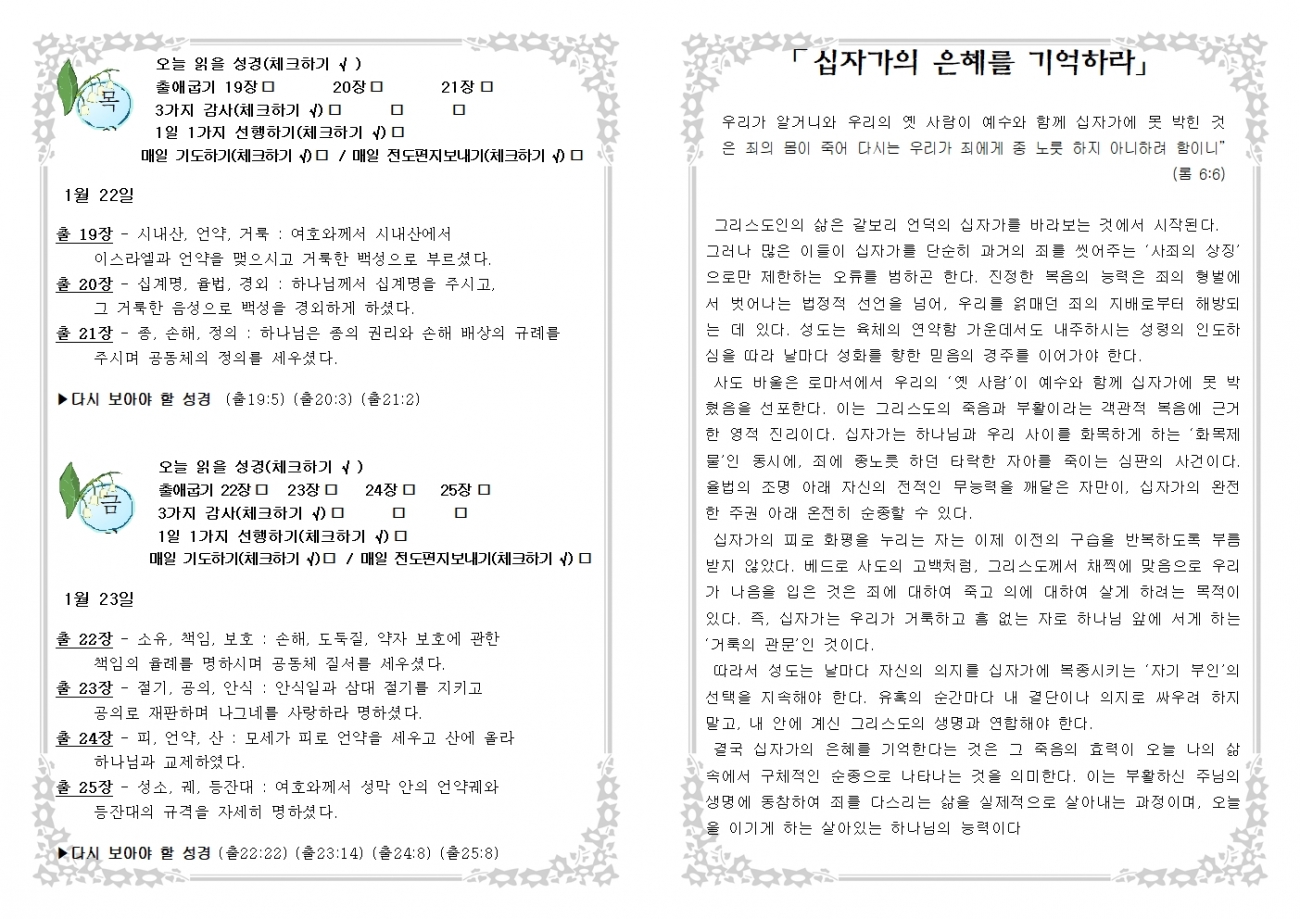 오늘 읽을 성경(체크하기 √ )
목
출애굽기 19장 □ 20장 □ 21장 □
3가지 감사(체크하기 √) □ □ □
1일 1가지 선행하기(체크하기 √) □
매일 기도하기(체크하기 √) □ / 매일 전도편지보내기(체크하기 √) □
1월 22일
출 19장 - 시내산, 언약, 거룩 : 여호와께서 시내산에서
이스라엘과 언약을 맺으시고 거룩한 백성으로 부르셨다.
출 20장 - 십계명, 율법, 경외 : 하나님께서 십계명을 주시고,
그 거룩한 음성으로 백성을 경외하게 하셨다.
출 21장 - 종, 손해, 정의 : 하나님은 종의 권리와 손해 배상의 규례를
주시며 공동체의 정의를 세우셨다.
▶다시 보아야 할 성경 (출19:5) (출20:3) (출21:2)
오늘 읽을 성경(체크하기 √ )
금
출애굽기 22장 □ 23장 □ 24장 □ 25장 □
3가지 감사(체크하기 √) □ □ □
1일 1가지 선행하기(체크하기 √) □
매일 기도하기(체크하기 √) □ / 매일 전도편지보내기(체크하기 √) □
1월 23일
출 22장 - 소유, 책임, 보호 : 손해, 도둑질, 약자 보호에 관한
책임의 율례를 명하시며 공동체 질서를 세우셨다.
출 23장 - 절기, 공의, 안식 : 안식일과 삼대 절기를 지키고
공의로 재판하며 나그네를 사랑하라 명하셨다.
출 24장 - 피, 언약, 산 : 모세가 피로 언약을 세우고 산에 올라
하나님과 교제하였다.
출 25장 - 성소, 궤, 등잔대 : 여호와께서 성막 안의 언약궤와
등잔대의 규격을 자세히 명하셨다.
▶다시 보아야 할 성경 (출22:22) (출23:14) (출24:8) (출25:8)
「 십자가의 은혜를 기억하라」
우리가 알거니와 우리의 옛 사람이 예수와 함께 십자가에 못 박힌 것
은 죄의 몸이 죽어 다시는 우리가 죄에게 종 노릇 하지 아니하려 함이니”
(롬 6:6)
그리스도인의 삶은 갈보리 언덕의 십자가를 바라보는 것에서 시작된다.
그러나 많은 이들이 십자가를 단순히 과거의 죄를 씻어주는 ‘사죄의 상징’
으로만 제한하는 오류를 범하곤 한다. 진정한 복음의 능력은 죄의 형벌에
서 벗어나는 법정적 선언을 넘어, 우리를 얽매던 죄의 지배로부터 해방되
는 데 있다. 성도는 육체의 연약함 가운데서도 내주하시는 성령의 인도하
심을 따라 날마다 성화를 향한 믿음의 경주를 이어가야 한다.
사도 바울은 로마서에서 우리의 ‘옛 사람’이 예수와 함께 십자가에 못 박
혔음을 선포한다. 이는 그리스도의 죽음과 부활이라는 객관적 복음에 근거
한 영적 진리이다. 십자가는 하나님과 우리 사이를 화목하게 하는 ‘화목제
물’인 동시에, 죄에 종노릇 하던 타락한 자아를 죽이는 심판의 사건이다.
율법의 조명 아래 자신의 전적인 무능력을 깨달은 자만이, 십자가의 완전
한 주권 아래 온전히 순종할 수 있다.
십자가의 피로 화평을 누리는 자는 이제 이전의 구습을 반복하도록 부름
받지 않았다. 베드로 사도의 고백처럼, 그리스도께서 채찍에 맞음으로 우리
가 나음을 입은 것은 죄에 대하여 죽고 의에 대하여 살게 하려는 목적이
있다. 즉, 십자가는 우리가 거룩하고 흠 없는 자로 하나님 앞에 서게 하는
‘거룩의 관문’인 것이다.
따라서 성도는 날마다 자신의 의지를 십자가에 복종시키는 ‘자기 부인’의
선택을 지속해야 한다. 유혹의 순간마다 내 결단이나 의지로 싸우려 하지
말고, 내 안에 계신 그리스도의 생명과 연합해야 한다.
결국 십자가의 은혜를 기억한다는 것은 그 죽음의 효력이 오늘 나의 삶
속에서 구체적인 순종으로 나타나는 것을 의미한다. 이는 부활하신 주님의
생명에 동참하여 죄를 다스리는 삶을 실제적으로 살아내는 과정이며, 오늘
을 이기게 하는 살아있는 하나님의 능력이다